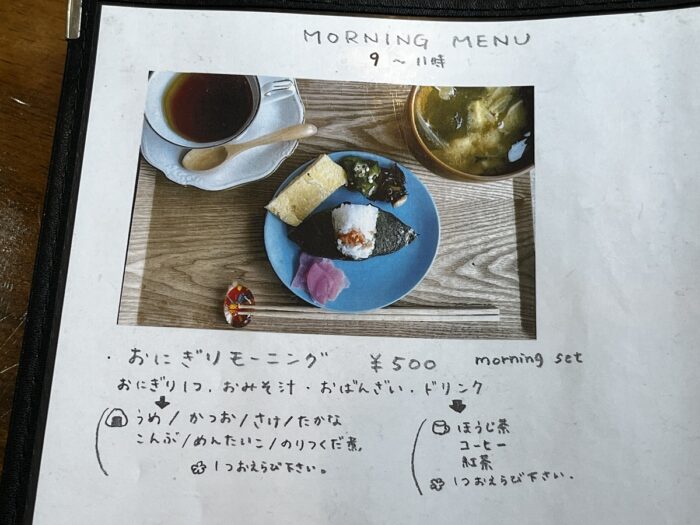 MORNING MENU
9 ~ 11時
・おにぎりモーニング ¥500 morning set
おにぎり1つ．おみそ汁・おばんざい．ドリンク
うめ/かつお/さけ/たかな
こんぶ/めんたいこ/のりつくだ煮
1つおえらび下さい。
ほうじ茶
コーヒー
紅茶
1つおえらび下さい．